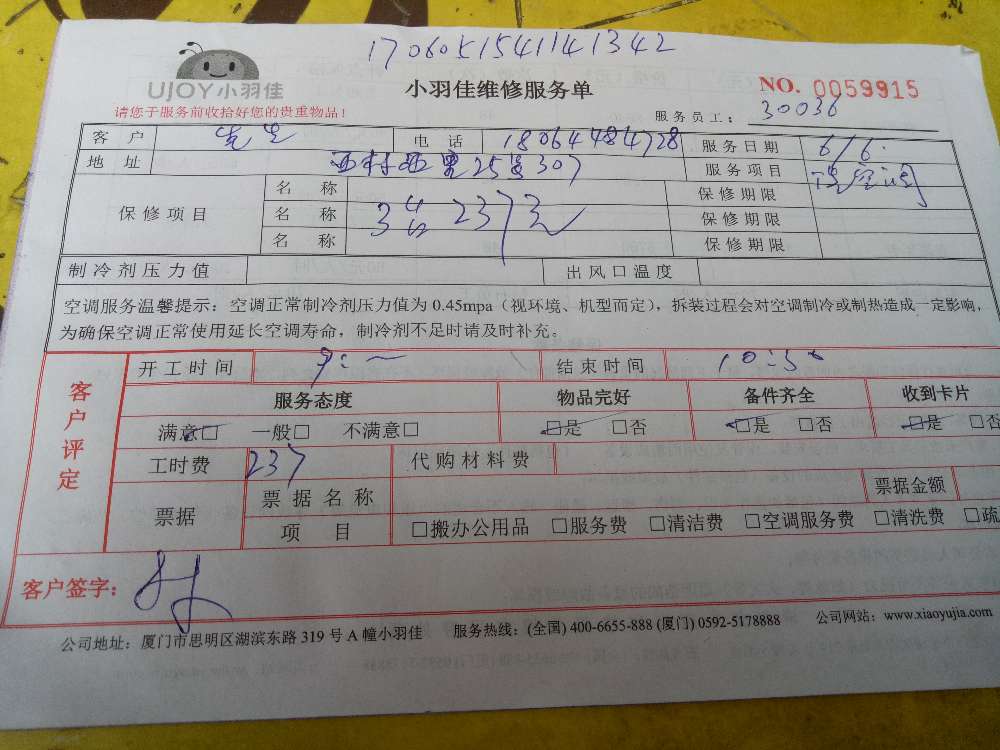 1706051541141342
UJOY小羽佳
小羽佳维修服务单
NO. 0059915
请您于服务前收拾好您的贵重物品!
服务员工: 30036
客户 先生 电话 18064484728 服务日期 6/6.
地址 西村西里25号307 服务项目
保修项目 名称 保修期限
名称 3台 237元 保修期限
名称 保修期限
制冷剂压力值 出风口温度
空调服务温馨提示:空调正常制冷剂压力值为 0.45mpa(视环境、机型而定),拆装过程会对空调制冷或制热造成一定影响,
为确保空调正常使用延长空调寿命,制冷剂不足时请及时补充。
客户评定
开工时间 9:一 结束时间 10:30
服务态度 物品完好 备件齐全 收到卡片
满意□ 一般□ 不满意□ □是 □否 □是 □否 □是 □否
工时费 237 代购材料费
票据 票据名称 票据金额
项目 □搬办公用品 □服务费 □清洁费 □空调服务费 □清洗费 □疏
客户签字:
公司地址:厦门市思明区湖滨东路 319 号 A 幢小羽佳 服务热线:(全国) 400-6655-888 (厦门) 0592-5178888 公司网站:www.xiaoyujia.com